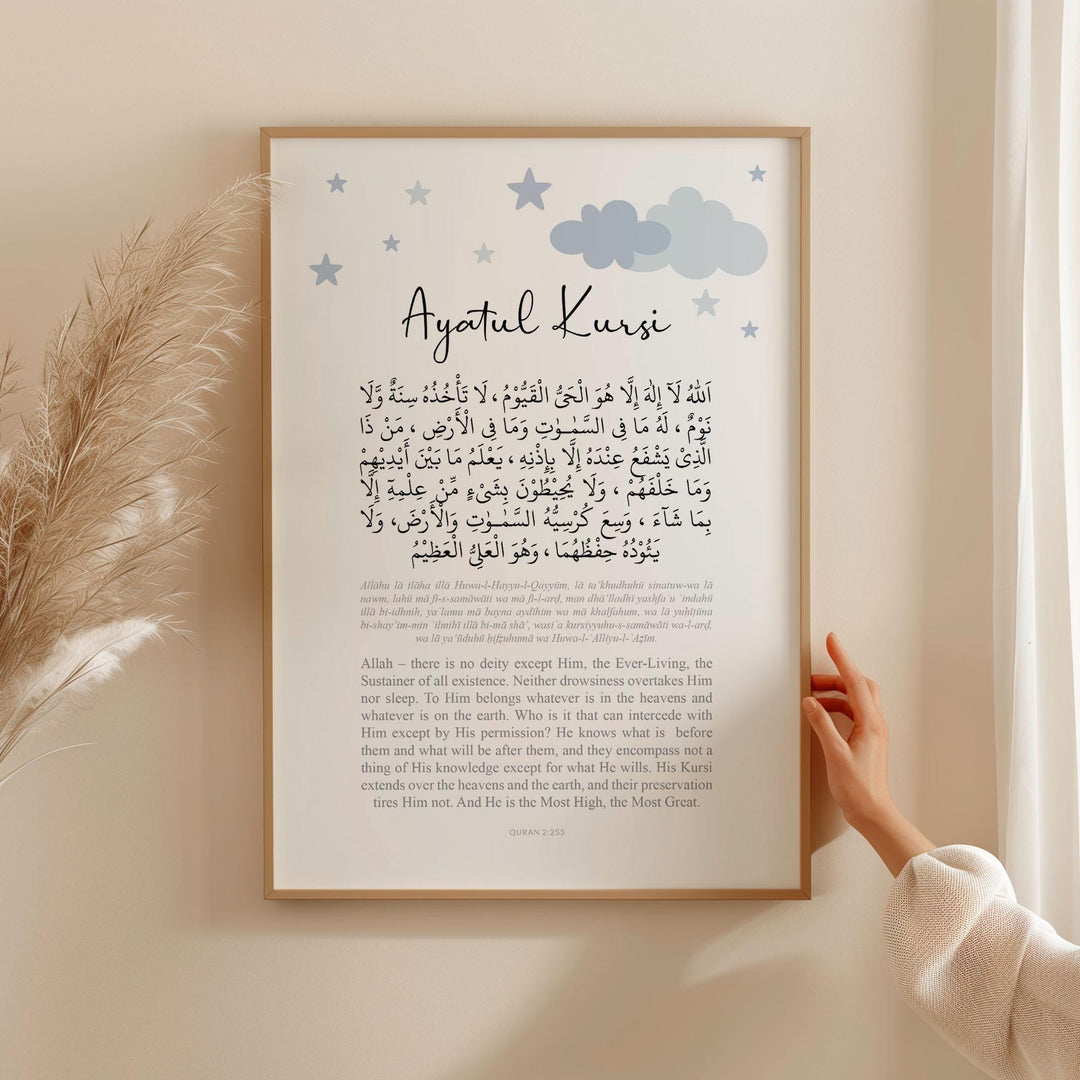 Ayatul Kursi
اَللّٰهُ لَآ إِلٰهَ إِلَّا هُوَ الْحَىُّ الْقَيُّوْمُ ، لَا تَأْخُذُهُ سِنَةٌ وَّلَا
نَوْمٌ ، لَهُ مَا فِى السَّمٰـوٰتِ وَمَا فِى الْأَرْضِ ، مَنْ ذَا
الَّذِىْ يَشْفَعُ عِنْدَهُ إِلَّا بِإِذْنِهِ ، يَعْلَمُ مَا بَيْنَ أَيْدِيْهِمْ
وَمَا خَلْفَهُمْ ، وَلَا يُحِيْطُوْنَ بِشَىْءٍ مِّنْ عِلْمِهٓ إِلَّا
بِمَا شَآءَ ، وَسِعَ كُرْسِيُّهُ السَّمٰـوٰتِ وَالْأَرْضَ، وَلَا
يَئُوْدُهُ حِفْظُهُمَا ، وَهُوَ الْعَلِىُّ الْعَظِيْمُ
Allāhu lā ilāha illā Huwa-l-Hayyu-l-Qayyūm, lā ta'khudhuhū sinatuw-wa lā
nawm, lahū mā fi-s-samāwāti wa mā fi-l-arḍ, man dhā'lladhī yashfaʿu ʿindahū
illā bi-idhnih, yaʿlamu mā bayna aydīhim wa mā khalfahum, wa lā yuḥīṭūna
bi-shay'im-min ʿilmihī illā bi-mā shā', wasiʿa kursiyyuhu-s-samāwāti wa-l-arḍ,
wa lā ya'ūduhū ḥifẓuhumā wa Huwa-l-ʿAlliyu-l-ʿAẓīm.
Allah – there is no deity except Him, the Ever-Living, the
Sustainer of all existence. Neither drowsiness overtakes Him
nor sleep. To Him belongs whatever is in the heavens and
whatever is on the earth. Who is it that can intercede with
Him except by His permission? He knows what is before
them and what will be after them, and they encompass not a
thing of His knowledge except for what He wills. His Kursi
extends over the heavens and the earth, and their preservation
tires Him not. And He is the Most High, the Most Great.
QURAN 2:255